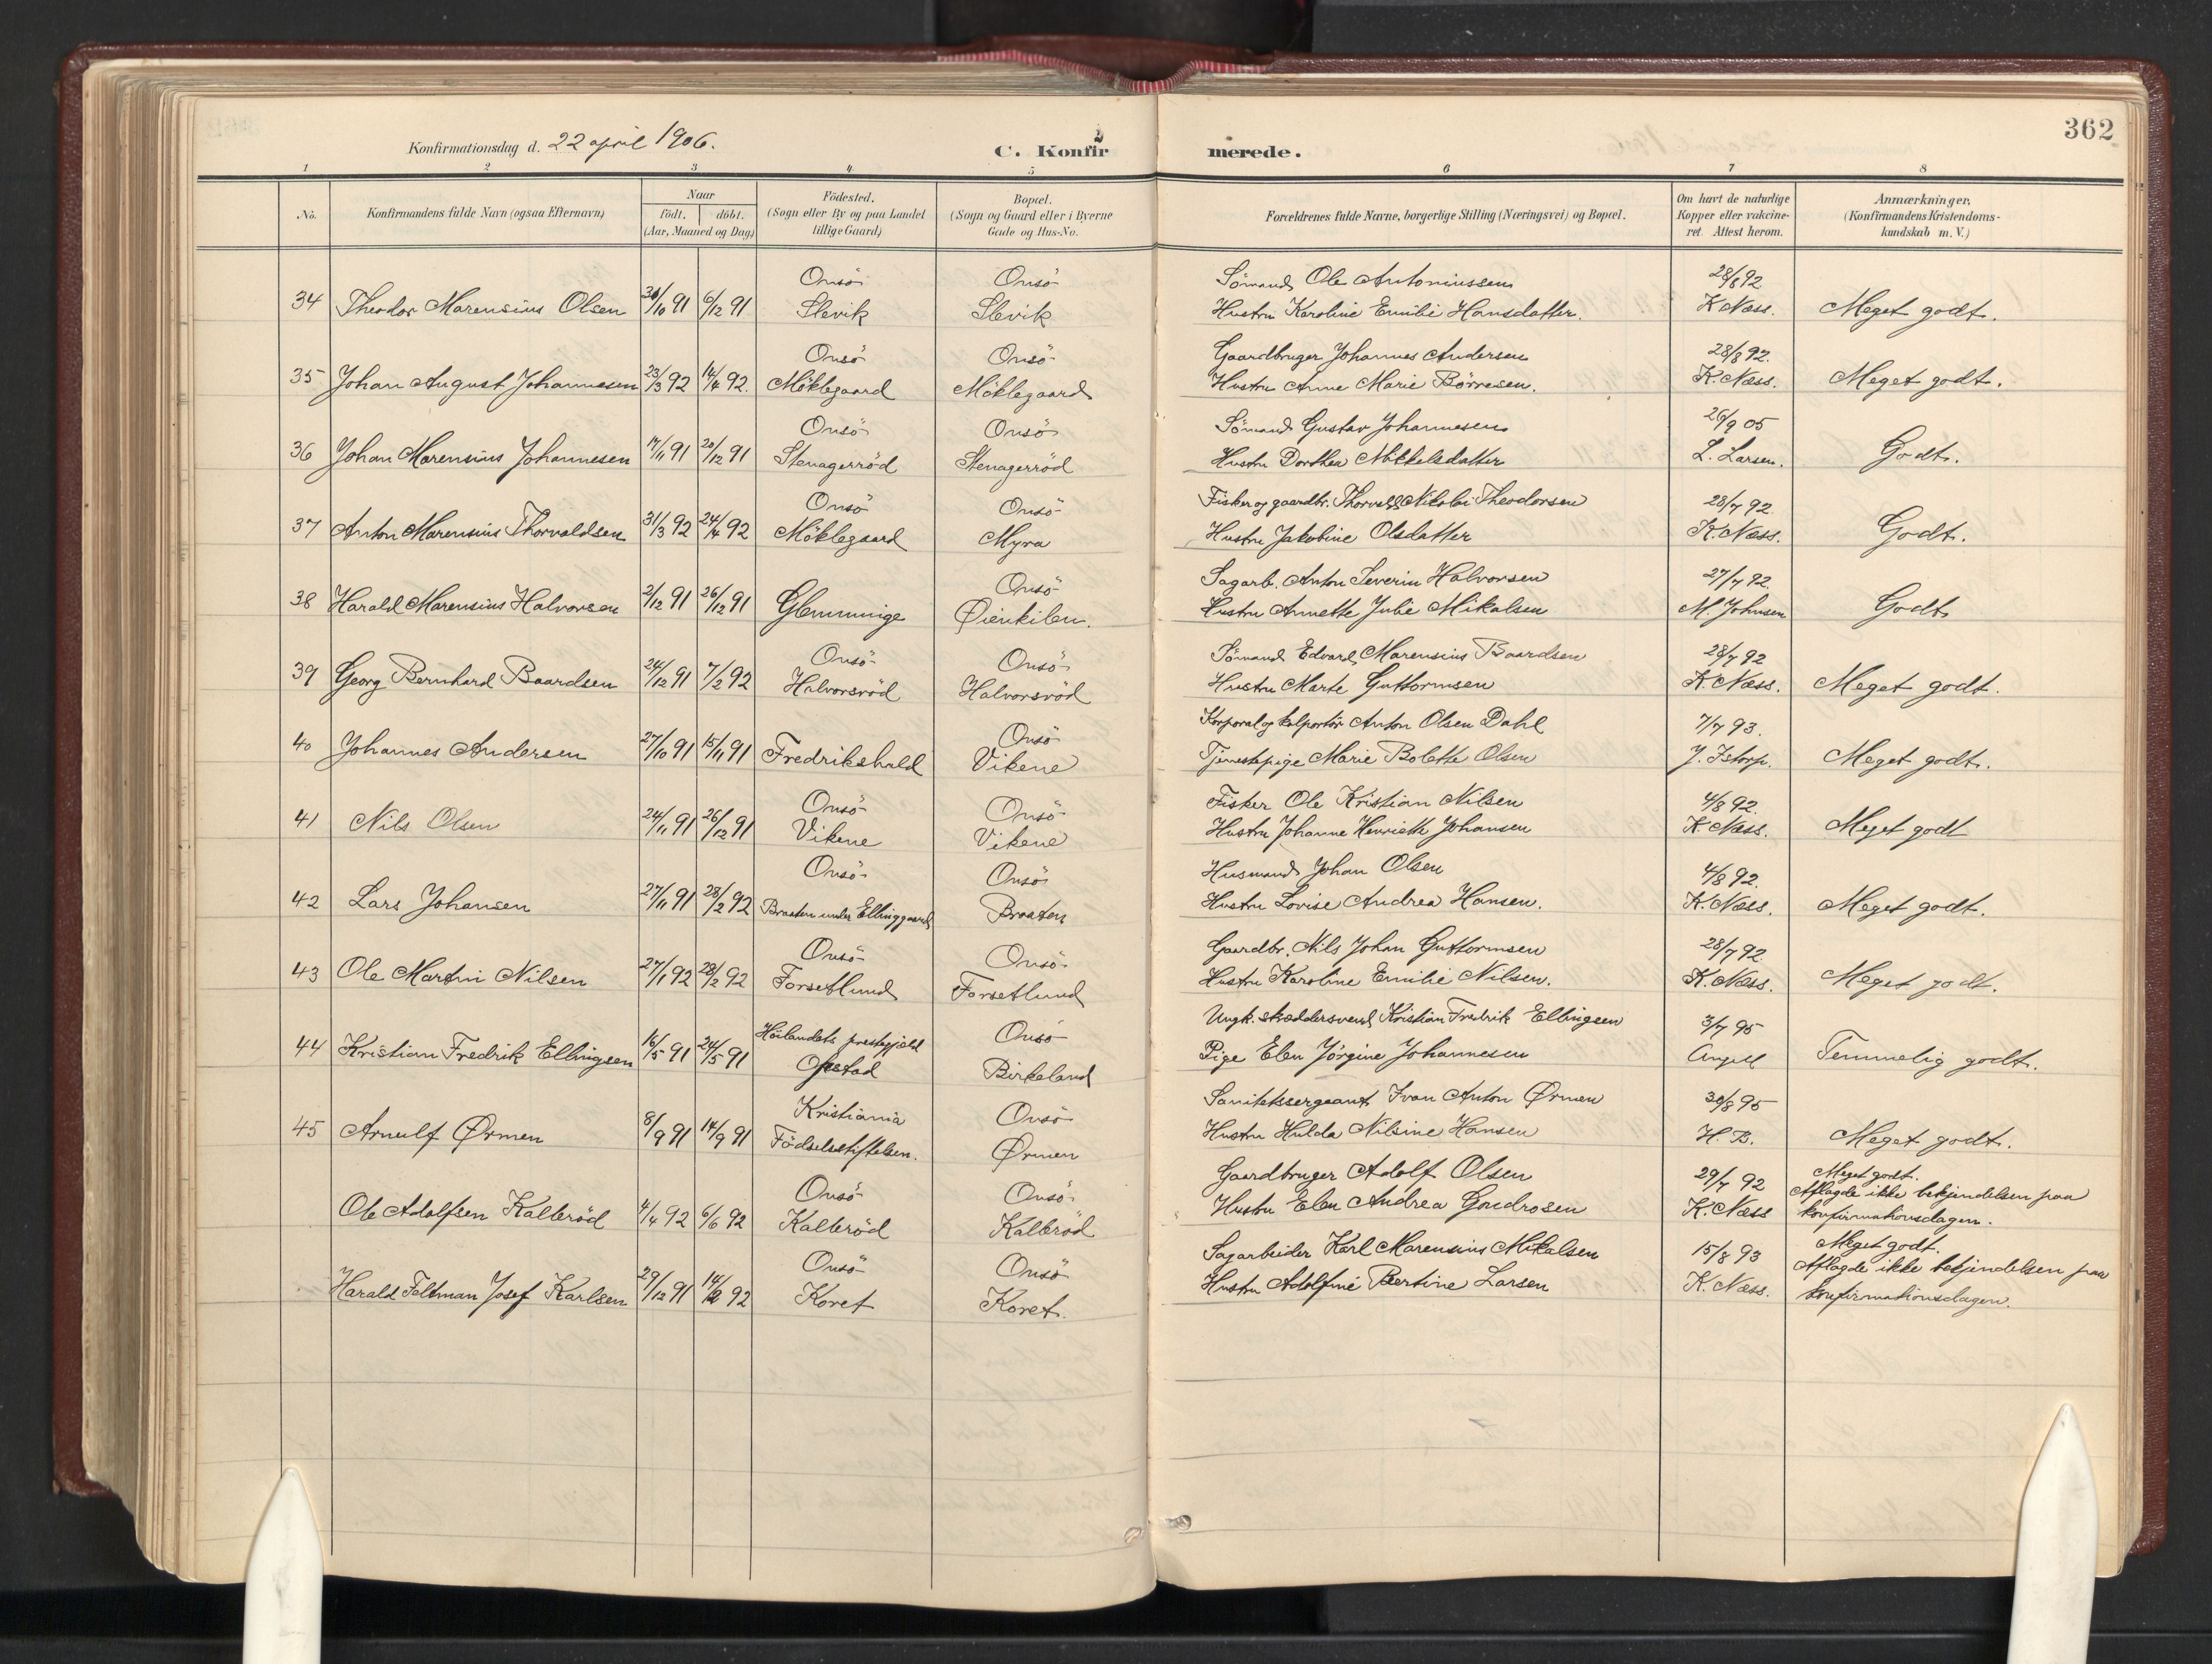 362
Konfirmationsdag d. 22 april 1906.
C. Konfirmerede.
1 2 3 4 5 6 7 8
No.
Konfirmandens fulde Navn (ogsaa Efternavn)
Naar
födt. döbt.
(Aar, Maaned og Dag)
Födested.
(Sogn eller By og paa Landet
tillige Gaard)
Bopæl.
(Sogn og Gaard eller i Byerne
Gade og Hus-No.
Forældrenes fulde Navne, borgerlige Stilling (Næringsvei) og Bopæl.
Om havt de naturlige
Kopper eller vakcine-
ret. Attest herom.
Anmærkninger.
(Konfirmandens Kristendoms-
kundskab m. V.)
Onsö Onsö Sömand Ole Antoniussen 28/8 92
34 Theodor Marensius Olsen 30/10 91 6/12 91 Slevik Slevik Hustru Karoline Emilie Hansdatter. K Næss. Meget godt.
Onsö Onsö Gaardbruger Johannes Andersen 28/8 92.
35 Johan August Johannesen 23/3 92 14/4 92. Möklegaard Möklegaard Hustru Anne Marie Börresen. K. Næss. Meget godt.
Onsö Onsö Sömand Gustav Johannesen 26/9 05
36 Johan Marensius Johannesen 17/11 91 20/12 91 Stenagerröd Stenagerröd Hustru Dorthea Mikkelsdatter L. Larsen. Godt.
Onsö Onsö Fisker og gaardbr. Thorvald Nikolai Theodorsen 28/7 92.
37 Anton Marensius Thorvaldsen 31/3 92 24/4 92 Möklegaard Myra Hustru Jakobine Olsdatter K. Næss. Godt.
Onsö Sagarb. Anton Severin Halvorsen 27/7 92.
38 Harald Marensius Halvorsen 2/12 91 26/12 91 Glemminge Øienkilen. Hustru Annette Julie Mikalsen M. Johnsen Godt
Onsö Onsö Sömand Edvard Marensius Baardsen 28/7 92
39 Georg Bernhard Baardsen 24/12 91 7/2 92 Halvorsröd Halvorsröd Hustru Marte Guttormsen K. Næss. Meget godt.
Onsö Korporal og kolportör Anton Olsen Dahl 7/7 93.
40 Johannes Andersen 27/10 91 15/11 91 Fredrikshald Vikene Tjenestepige Marie Bolette Olsen J. Istorp. Meget godt.
Onsö Onsö Fisker Ole Kristian Nilsen 4/8 92.
41 Nils Olsen 24/11 91 26/12 91 Vikene Vikene Hustru Johanne Henriette Johansen K. Næss. Meget godt
Onsö Onsö Husmand Johan Olsen 4/8 92.
42 Lars Johansen 27/11 91 28/2 92 Braaten under Ellinggaard Braaten Hustru Lovise Andrea Hansen. K. Næss. Meget godt.
Onsö Onsö Gaardbr. Nils Johan Guttormsen 28/7 92
43 Ole Martin Nilsen 27/1 92 28/2 92 Forsetlund Forsetlund Hustru Karoline Emilie Nilsen. K. Næss. Meget godt.
Höilandets prestegjeld Onsö Ungk. skræddersvend Kristian Fredrik Ellingsen 3/7 95
44 Kristian Fredrik Ellingsen 16/5 91 24/5 91 Opstad Birkeland Pige Elen Jörgine Johannesen Angell Temmelig godt.
Kristiania Onsö Sanitetssergeant Ivan Anton Ørmen 30/8 95
45 Arnulf Ørmen 8/9 91 14/9 91 Födselsstiftelsen. Ørmen Hustru Hulda Nilsine Hansen H. B. Meget godt.
Onsö Onsö Gaardbruger Adolf Olsen 29/7 92 Meget godt.
Ole Adolfsen Kalleröd 4/4 92 6/6 92 Kalleröd Kalleröd Hustru Elen Andrea Gundrosen K. Næss Aflagde ikke bekjendelsen paa
konfirmationsdagen.
Onsö Onsö Sagarbeider Karl Marensius Mikalsen 15/8 93 Meget godt.
Harald Feltman Josef Karlsen 29/12 91 14/2 92 Koret Koret. Hustru Adolfine Bertine Larsen K. Næss. Aflagde ikke bekjendelsen paa
konfirmationsdagen.